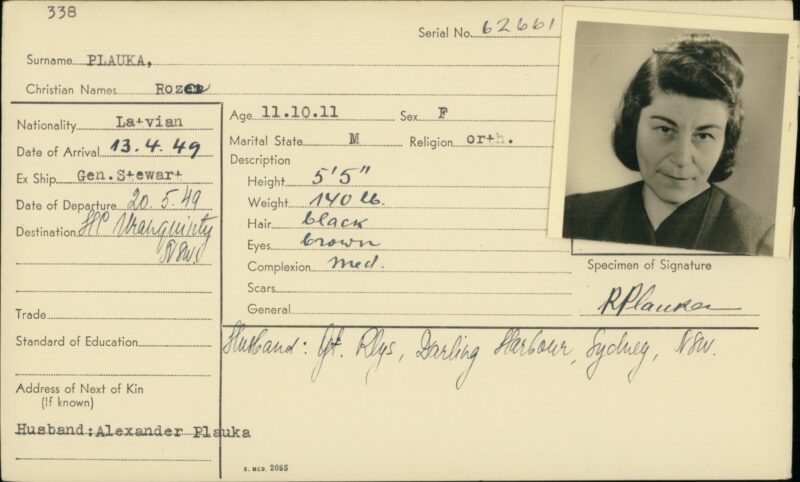 338
Serial No. 62661
Surname PLAUKA,
Christian Names Roze
Nationality Latvian
Date of Arrival 13.4.49
Ex Ship Gen.Stewart
Date of Departure 20.5.49
Destination HC Uranquinty
NSW.
Trade
Standard of Education
Address of Next of Kin
(If known)
Husband:Alexander Plauka
Age 11.10.11 Sex F
Marital State M Religion orth.
Description
Height 5'5"
Weight 140 lb.
Hair black
Eyes brown
Complexion med.
Scars
General
Specimen of Signature
RPlauka
Husband: Gt. Rlys, Darling Harbour, Sydney, NSW.
S. MCD. 2085